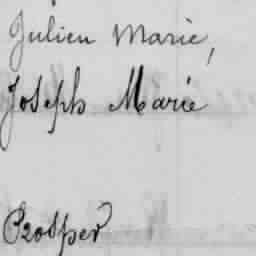 Julien Marie,
Joseph Marie
Prosper